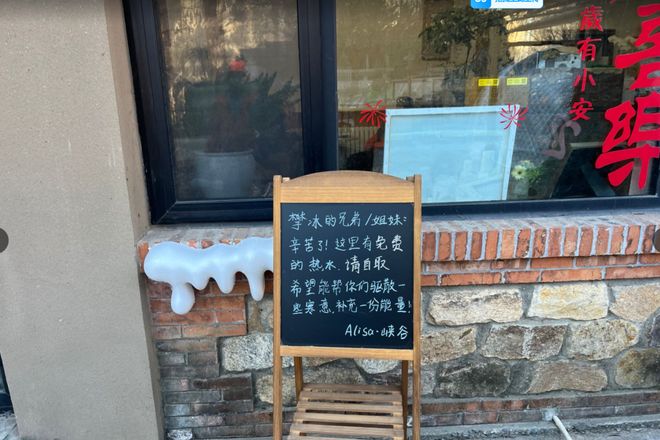 攀冰的兄弟/姐妹:
辛苦了!这里有免费
的热水,请自取
希望能帮你们驱散一
些寒意,补充一份能量!
Alisa·峡谷
岁有小安
喜乐